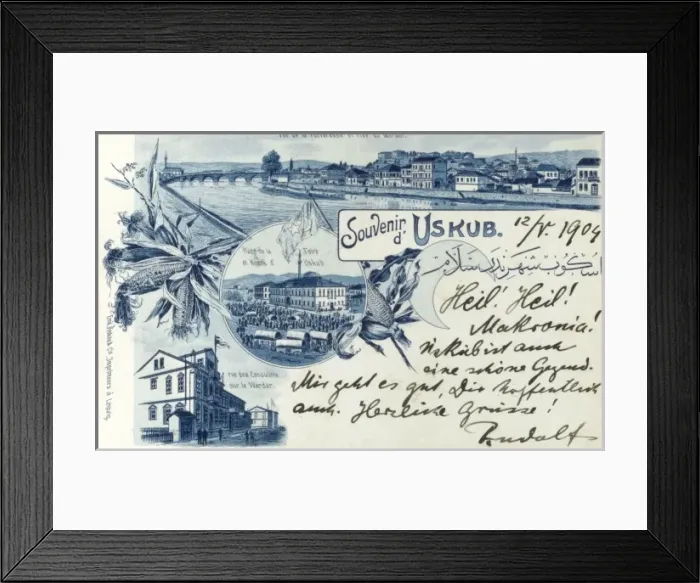 Souvenir
d' USKUB.
12/V. 1904
اسكوب شهرندن سلام
Heil! Heil!
Makronia!
Uskub ist auch
eine schöne Gegend.
Mir geht es gut, Dir hoffentlich
auch. Herzliche Grüsse!
Rudolf
Foire
Uskub
rue des Consulats
sur le Wardar.